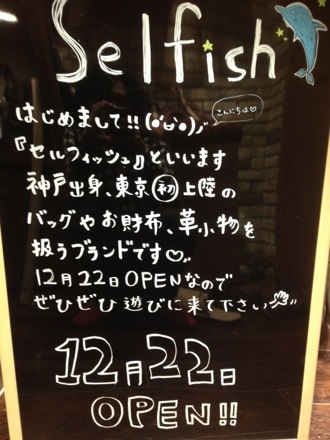 Selfish
はじめまして!!(o'ω'o)ノ
こんにちは♡
『セルフィッシュ』といいます
神戸出身、東京㊙上陸の
バッグやお財布、革小物を
扱うブランドです♡〃
12月22日OPENなので
ぜひぜひ遊びに来て下さい
12月22日
OPEN!!